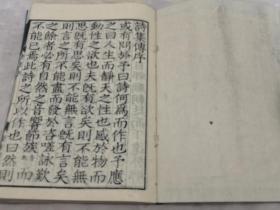 詩集傳序
或有問於予曰詩何爲而作也予應
之曰人生而靜天之性也感於物而
動性之欲也夫既有欲矣則不能無
思既有思矣則不能無言既有言矣
則言之所不能盡而發於咨嗟詠歎
之餘者必有自然之音響節族而
不能已焉此詩之所以作也曰然則